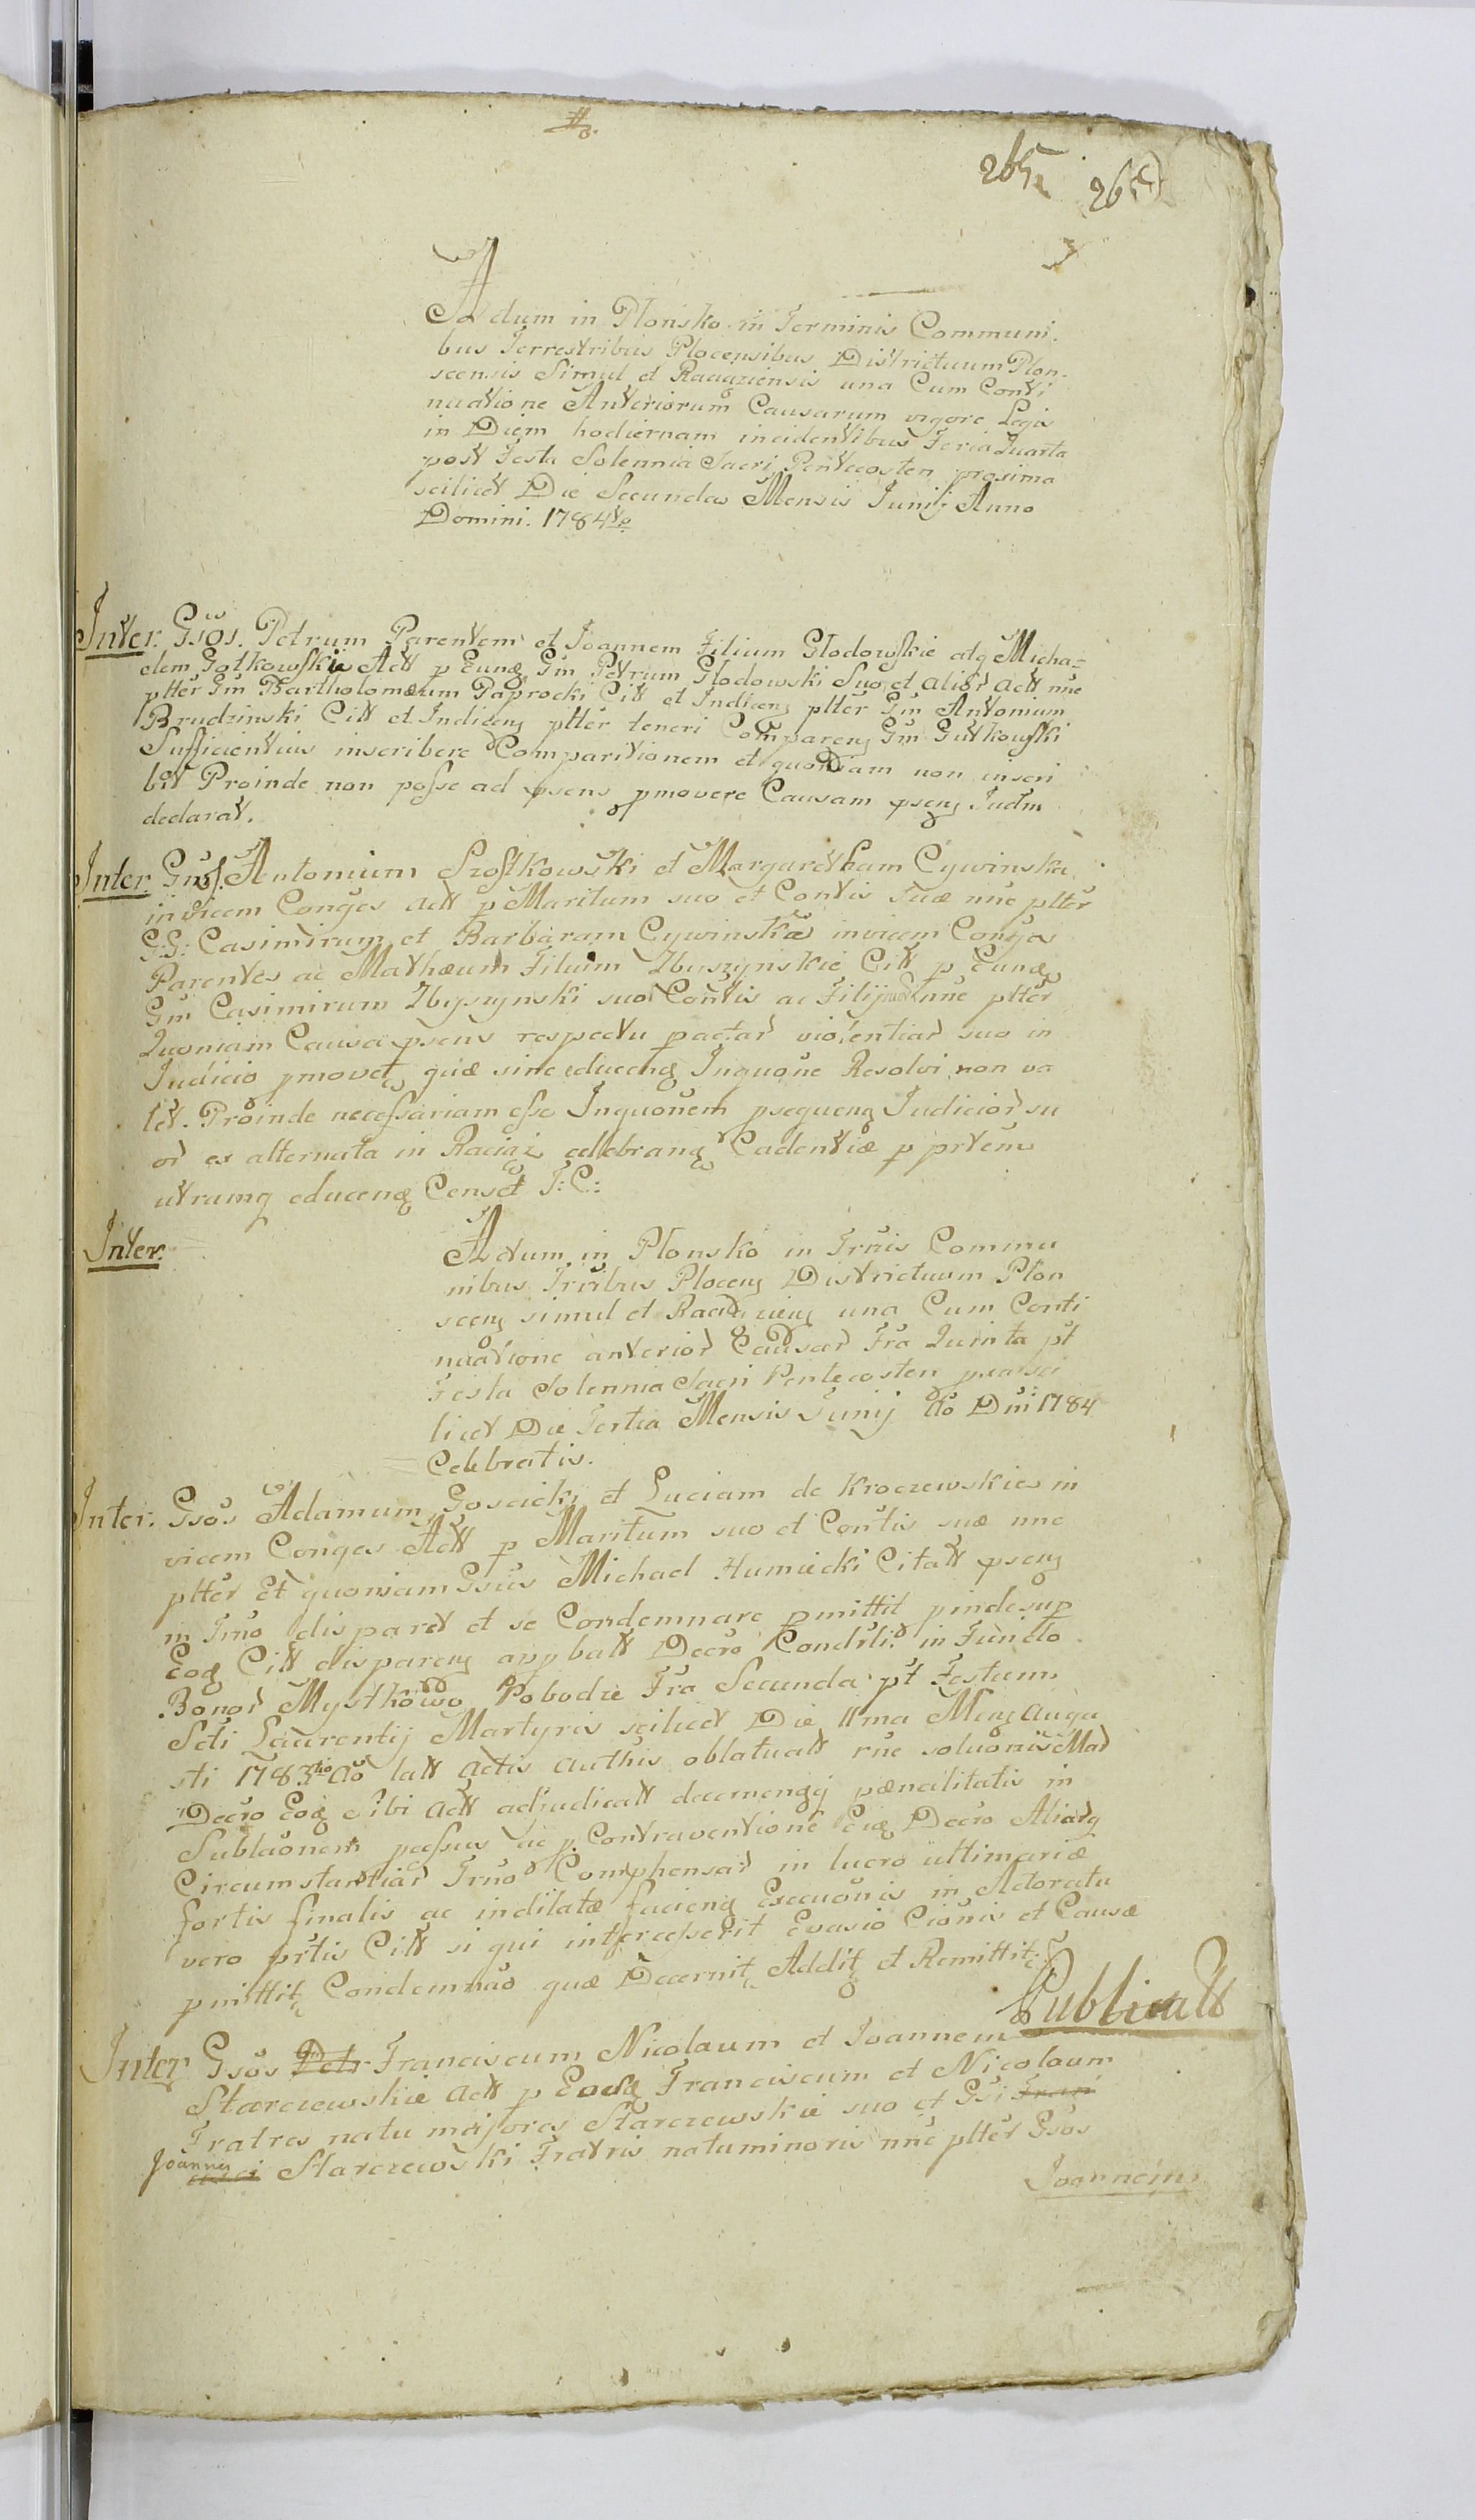 265
Actum in Plonsko in Terminis Communi
bus Terrestribus Plocensibus Districtuum Plon-
scensis Simul et Raciąziensis una Cum Conti
nuatione Anteriorum Causarum vigore Legis
in Diem hodiernam incidentibus Feria Quarta
post Festa Solennia Sacri Pentecosten proxima
scilicet Die Secunda Mensis Junij Anno
Domini. 1784to
Inter Gsos. Petrum Parentem et Joannem Filium Glodowskie atq Micha=
elem Gotkowskie Actt p Eundē Gm Petrum Glodowski Suo et alior Actt nnc
ptter Gm Bartholomæum Paprocki Citt et Indiceng ptter Gm Antonium
Brudzinski Citt et Indiceng ptter teneri Compareng Gm Gutkowski
Sufficientius inscribere Comparitionem et quoniam non inscri
bit Proinde non posse ad psens pmovere Causam pseng Judm
declarat.
Inter Gnos. Antonium Szostkowski et Margaretham Cywinska
invicem Conges Actt p Maritum suo et Contis suæ nnc ptter
G:G: Casimirum et Barbaram Cywinskæ invicem Conges
Parentes ac Mathæum Filium Zbyszynskie Citt p Eundē
Gm Casimirum Zbyszynski suo Contis ac Filij nnc ptter
Quoniam Causa psens respectu pactar violentiar suo in
Judicio pmovetę quæ sine educendę Inquone Resolvi non va
let. Proinde necessariam esse Inquonem psequeng Judicior su
or ex alternata in Raciąz celebrandę Cadentiæ p prtem
utramq educendę Censet J:C:
Inter
Actum in Plonsko in Trnis Commu
nibus Trribus Ploceng Districtuum Plon
sceng simul et Raciązieng una Cum Conti
nuatione anterior Causar Fra Quinta pt
Festa Solennia Sacri Pentecosten pxa sci
licet Die Tertia Mensis Junij Ao Dni 1784
Celebratis.
Inter. Gsos Adamum Goscicki et Luciam de Kroczewskies in
vicem Conges Actt p Maritum suo et Contis suæ nnc
ptter Et quoniam Gsus Michael Humiecki Citatt pseng
in Trno disparet et se Condemnare pmittit pinde sup
Eodę Citt dispareng appbatt Decro Condrli in Fundo
Bonor Mystkowo Pobodze Fra Secunda pt Festum
Scti Laurentij Martyris scilicet Die 11ma Meng Augu
sti 1783tio Ao latt Actis Authis oblatuatt rne soluonis Mar
Decro Eodę sibi Actt adjudicatt pæncilitatis in
Sublaonem passus ac p Contraventione Eidę Decro Aliarq
Circumstantiar Trno Comphensar in lucro ultimariæ
sortis finalis ac indilatæ faciendę Executionis in Actoratu
vero prtis Citt si qui intercesserit Evasio Cionis et Causæ
pmittitę Condemnao quæ Decernitę Additę et Remittitę
Publicatt
Inter Gsos Petr Franciscum Nicolaum et Joannem
Starczewskie Actt p Eosdę Franciscum et Nicolaum
Fratres natu majores Starczewskie suo et Gsi Fran
Joannis cisci Starczewski Fratris natu minoris nnc ptter Gsos
Joannem